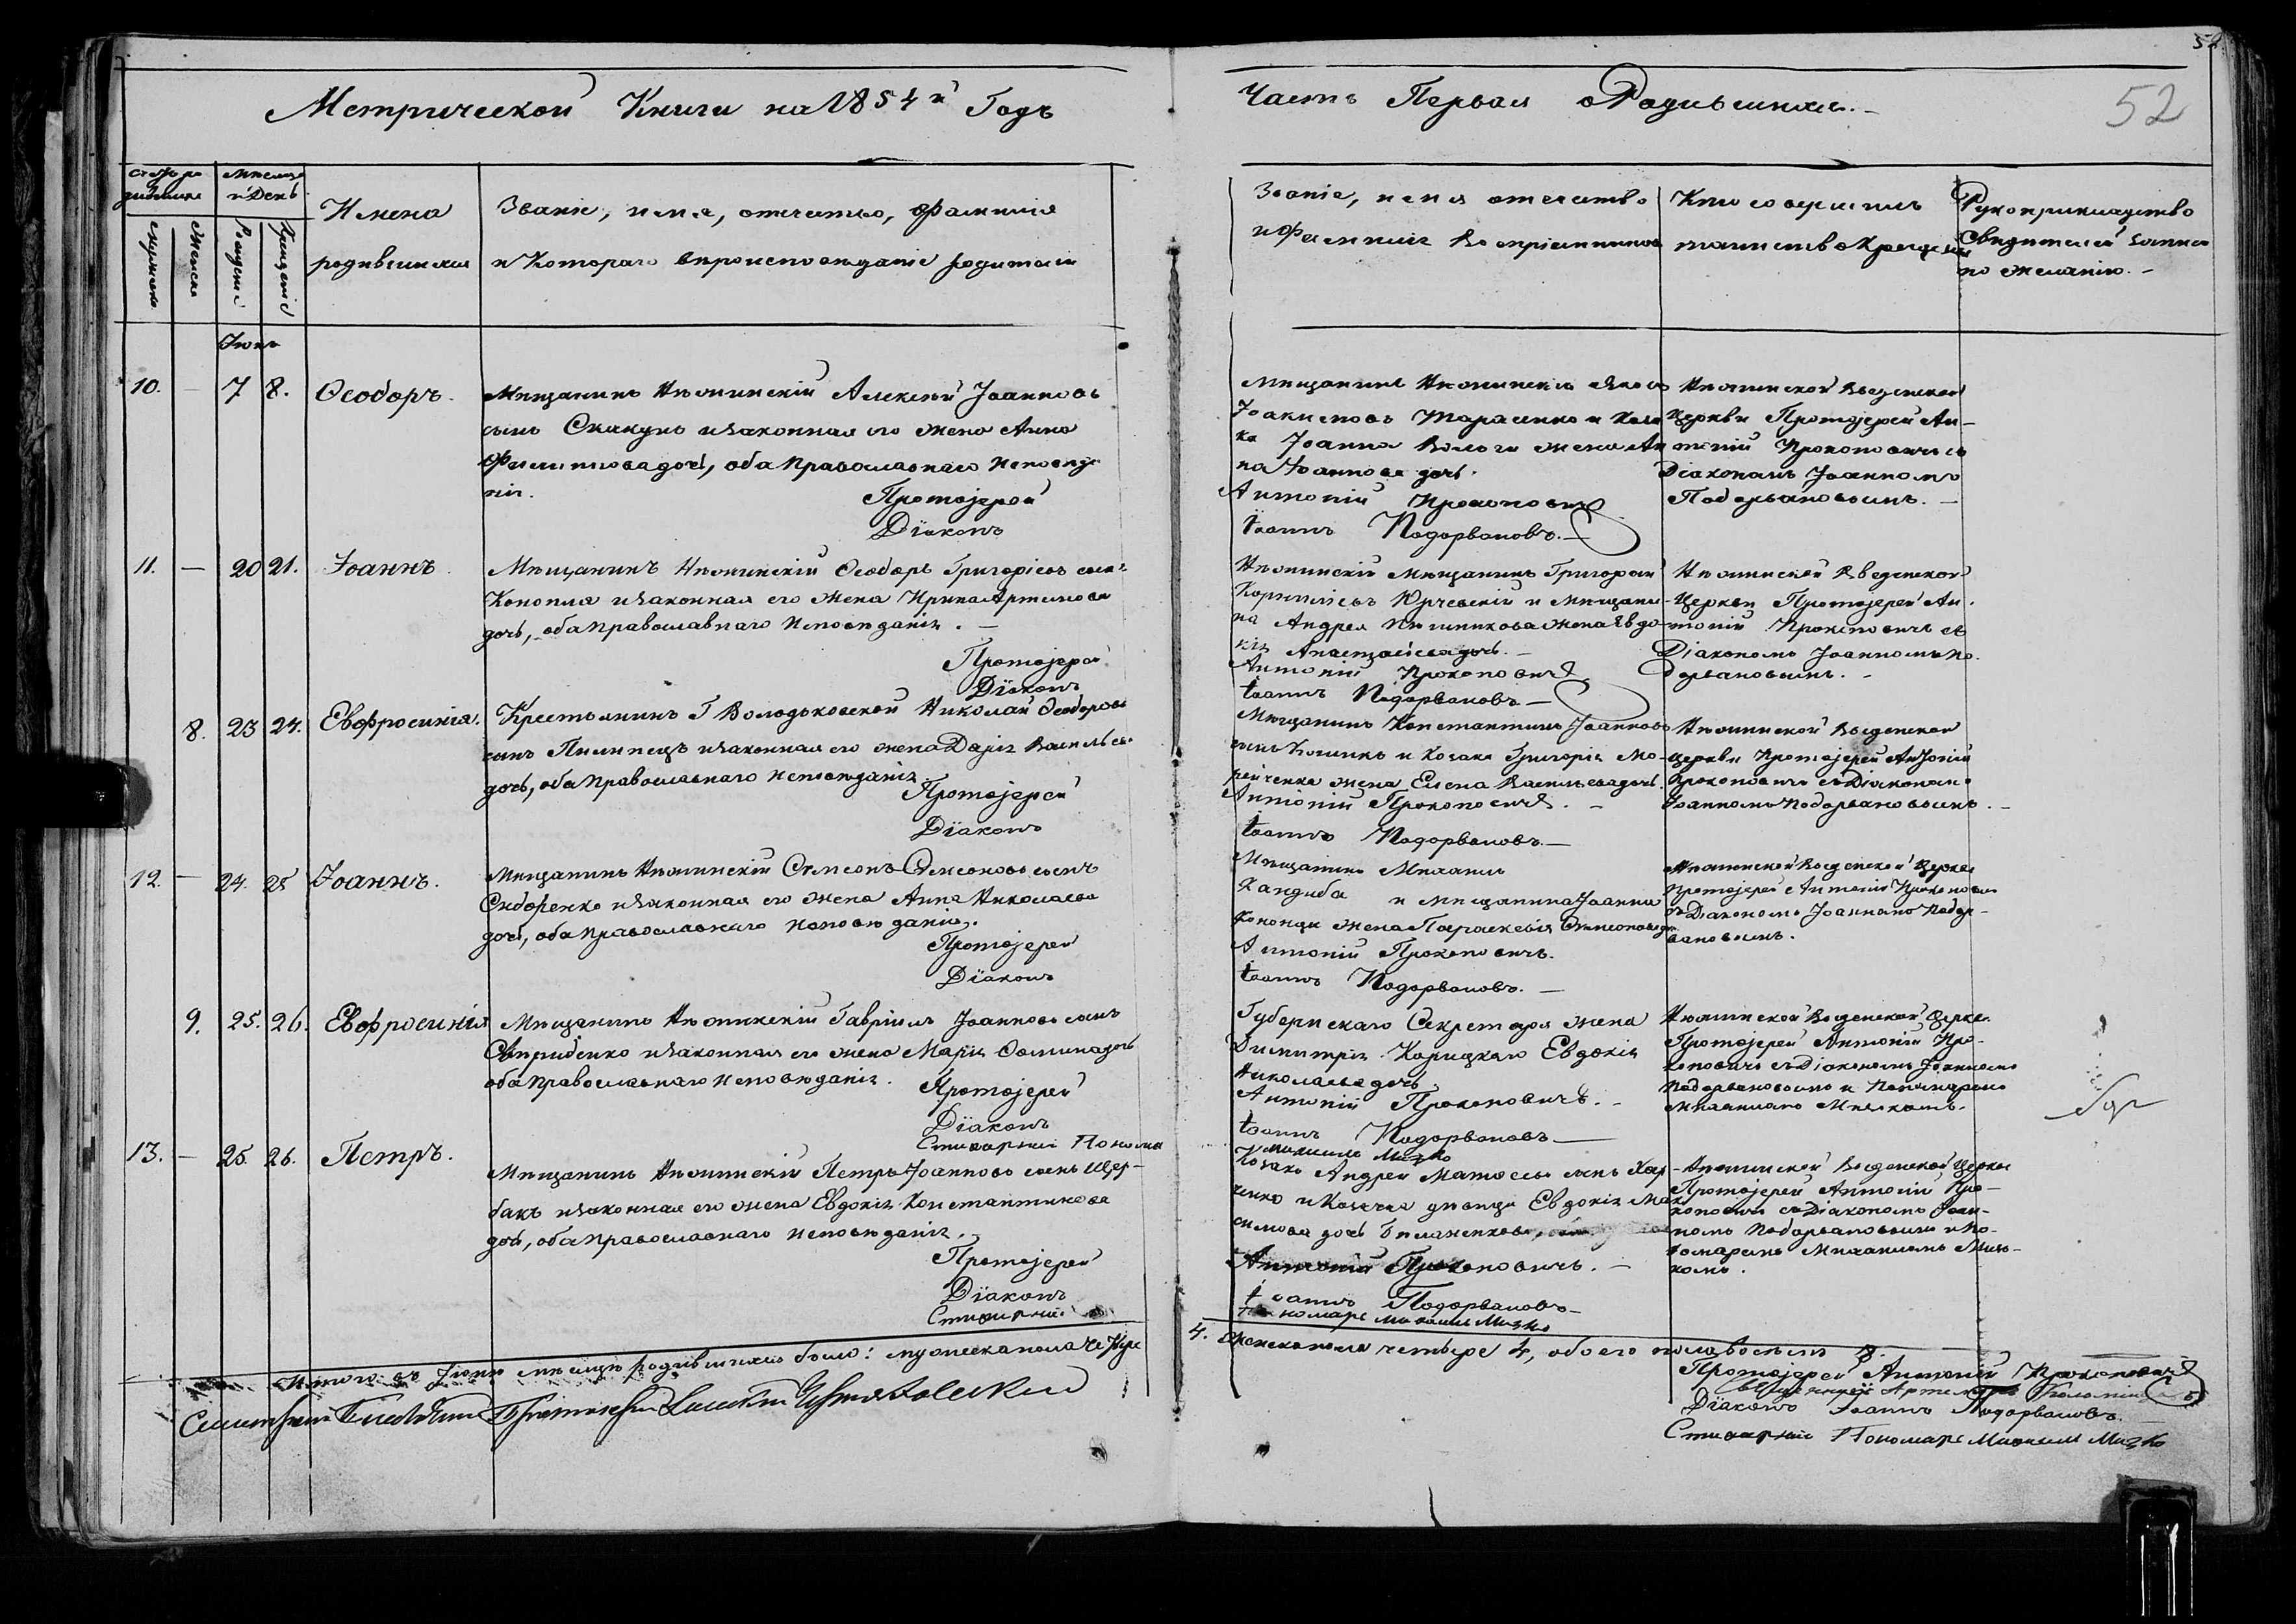 Метрической Книги на 1854й Годъ
Часть Первая о Родившихся. —
52
Имена
родившихся
Званіе, имя, отечество, Фамилія
и Котораго вѣроисповѣданіе родители
Званіе, имя отечество
и Фамилія Воспріемниковъ
Кто совершилъ
таинство Крещенія
Рукоприкладство
Свидѣтелей записи
по желанію. —
мужеска
женска
Рожденія
Крещеніе
Іюнь
10. — 7 8. Ѳеодоръ.
Мѣщанинъ Нѣжинскій Алексѣй Іоанновъ
сынъ Скакунъ и законная его жена Анна
Филиппова дочь, оба Православнаго Исповѣда
нія.
Протоіерей
Діаконъ
Мѣщанинъ Нѣжинскій Яковъ
Іоакимовъ Тарасенко и Коза
ка Іоанна жена Ан
на Іоаннова дочь.
Антоній Прокоповичъ
Іоаннъ Подорвановъ. —
Нѣжинской Введенской
Церкви Протоіерей Ан-
тоній Прокоповичъ съ
Діакономъ Іоанномъ
Подорвановымъ. —
11. — 20 21. Іоаннъ.
Мѣщанинъ Нѣжинскій Ѳеодоръ Григоріевъ сынъ
Конопля и законная его жена Ирина Артемова
дочь, оба Православнаго Исповѣданія. —
Протоіерей
Діаконъ
Нѣжинскій Мѣщанинъ Григорій
Корниліевъ Юрчевскій и мѣщани-
на Андрея жена Евдо-
кія дочь. —
Антоній Прокоповичъ
Іоаннъ Подорвановъ —
Нѣжинской Введенской
Церкви Протоіерей Ан-
тоній Прокоповичъ съ
Діакономъ Іоанномъ По-
дорвановымъ. —
8. 23 24. Евфросинія.
Крестьянинъ Г Володьковской Николай Ѳеодоровъ
сынъ Пилипецъ и законная его жена Дарія Васильева
дочь, оба Православнаго Исповѣданія
Протоіерей
Діаконъ
Мѣщанинъ Константинъ Іоанновъ
сынъ и Козака Григорія Мо-
жена Елена Васильева дочь.
Антоній Прокоповичъ. —
Іоаннъ Подорвановъ. —
Нѣжинской Введенской
Церкви Протоіерей Антоній
Прокоповичъ съ Діакономъ
Іоанномъ Подорвановымъ. —
12. — 24. 25 Іоаннъ.
Мѣщанинъ Нѣжинскій Симеонъ Симеоновъ сынъ
Сидоренко и законная его жена Анна Николаева
дочь, оба Православнаго Исповѣданія.
Протоіерей
Діаконъ
Мѣщанинъ Михаилъ
Кандиба и мѣщанина Іоанна
жена Параскевія Симеонова дочь
Антоній Прокоповичъ.
Іоаннъ Подорвановъ. —
Нѣжинской Введенской Церкви
Протоіерей Антоній Прокоповичъ
съ Діакономъ Іоанномъ Подор-
вановымъ.
9. 25. 26. Евфросинія
Мѣщанинъ Нѣжинскій Гавріилъ Іоанновъ сынъ
Свириденко и законная его жена Марія Фомина дочь
оба Православнаго Исповѣданія.
Протоіерей
Діаконъ
Стихарный Пономарь
Губернскаго Секретаря жена
Димитрія Корицкаго Евдокія
Николаева дочь
Антоній Прокоповичъ. —
Іоаннъ Подорвановъ —
Михаилъ Мизко
Нѣжинской Введенской Церкви
Протоіерей Антоній Про-
коповичъ съ Діакономъ Іоанномъ
Подорвановымъ и Пономаремъ
Михаиломъ Мизкомъ.
13. — 25. 26. Петръ.
Мѣщанинъ Нѣжинскій Петръ Іоанновъ сынъ Щер-
бакъ и законная его жена Евдокія Константинова
дочь, оба Православнаго Исповѣданія.
Протоіерей
Діаконъ
Стихарный
Козакъ Андрей Матвѣевъ сынъ Хар-
ченко и Козачка дѣвица Евдокія Мак
симова дочь
Антоній Прокоповичъ. —
Іоаннъ Подорвановъ —
Пономарь Михаилъ Мизко
Нѣжинской Введенской Церкви
Протоіерей Антоній Про-
коповичъ съ Діакономъ Іоан-
номъ Подорвановымъ и По-
номаремъ Михаиломъ Миз-
комъ.
Итого въ Іюнѣ мѣсяцѣ родившихся было: мужеска пола четыре
4. Женска пола четыре 4, обоего пола восемь 8.
Протоіерей Антоній Прокоповичъ
Діаконъ Іоаннъ Подорвановъ.
Стихарный Пономарь Михаилъ Мизко